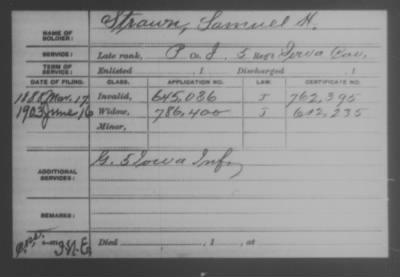 NAME OF SOLDIER: Strawn, Samuel H.
SERVICE: Late rank, P Co. I, 5 Reg't Iowa Cav.
TERM OF SERVICE: Enlisted , 1 Discharged , 1
DATE OF FILING. CLASS. APPLICATION NO. LAW. CERTIFICATE NO.
1888 Mar. 17 Invalid, 645,086 J 762,395
1903 June 16 Widow, 786,400 J 612,235
Minor,
ADDITIONAL SERVICES: G. 5 Iowa Inf.
REMARKS:
Died , 1 , at